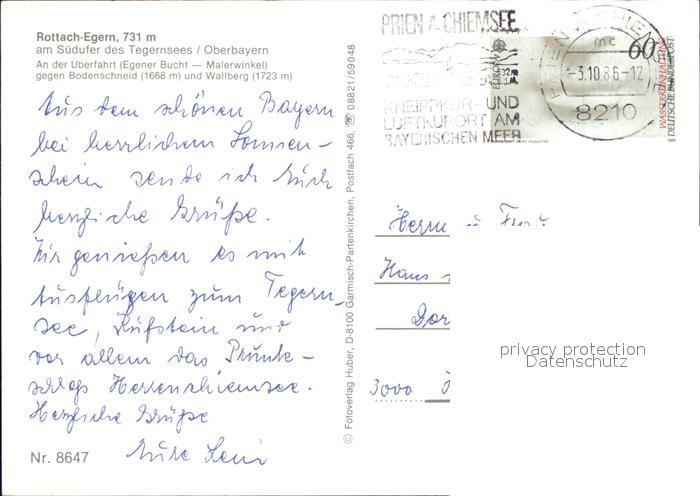 Rottach-Egern, 731 m
am Südufer des Tegernsees / Oberbayern
An der Überfahrt (Egener Bucht — Malerwinkel)
gegen Bodenschneid (1668 m) und Wallberg (1723 m)
Aus dem schönen Bayern
bei herrlichem Sonnen-
schein sende ich Euch
herzliche Grüße.
Wir genießen es mit
Ausflügen zum Tegern-
see, Kufstein und
vor allem das Prunk-
schloß Herrenchiemsee.
Herzliche Grüße
Eure Leni
Nr. 8647
© Fotoverlag Huber, D-8100 Garmisch-Partenkirchen, Postfach 466, ☎ 08821/59048
PRIEN A. CHIEMSEE
KNEIPPKUR- UND
LUFTKURORT AM
BAYERISCHEN MEER
EUROPA
PRIEN A CHIEMSEE
mc
-3.10.86-12
8210
60
WASSERREINHALTUNG
DEUTSCHE BUNDESPOST
Herrn u Frau
Hans
3000
privacy protection
Datenschutz